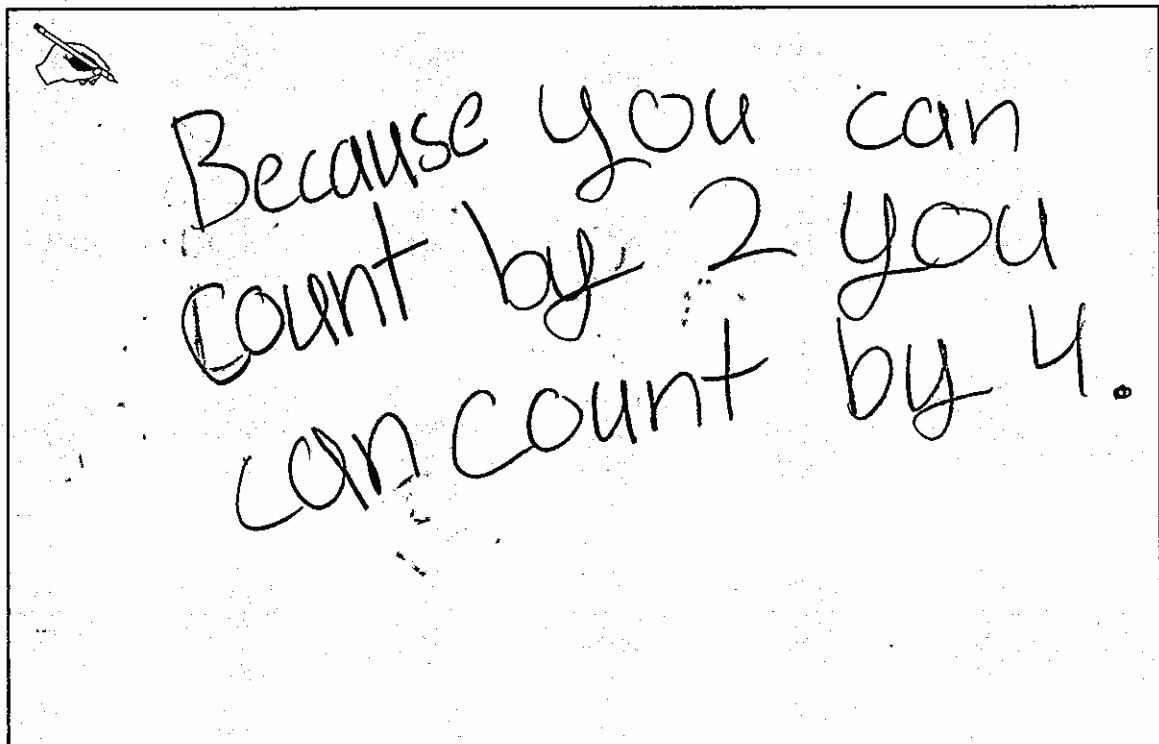 Because you can
count by 2 you
can count by 4.